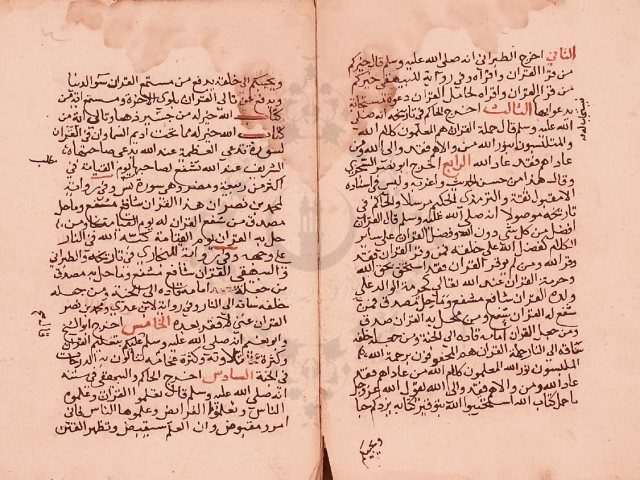 الثاني اخرج الطبراني انه صلى الله عليه وسلم قال خيركم
من قرأ القران واقرأه وفي رواية للبيهقي خيركم
من قرأ القران واقراه لحامل القران دعوة مستجابة
يدعو بها الثالث اخرج الحاكم في تاريخه انه صلى
الله عليه وسلم قال حملة القران هم المعلمون كلام الله
والمتلبسون بنور الله من والاهم فقد والى الله ومن
عاداهم فقد عاد الله الرابع اخرج ابو نصر السجزي
وقال هذا من حسن الحديث واغربه وليس في اسناده
الا مقبول ثقة والترمذي الحكيم مرسلا والحاكم في
تاريخه موصولا انه صلى الله عليه وسلم قال القران
افضل من كل شي دون الله وفضل القران على سائر
الكلام كفضل الله على خلقه فمن وقر القران فقد
وقر الله ومن لم يوقر القران فقد استخف بحق الله
وحرمة القران عند الله تعالى كحرمة الوالد على
ولده القران شافع مشفع وماحل مصدق فمن
شفع له القران شفع ومن محل به القران صدق
ومن جعل القران امامه قاده الى الجنة ومن جعله خلفه
ساقه الى النار حملة القران هم المحفوفون برحمة الله
الملبسون نور الله المعلمون كلام الله من عاداهم فقد
عاد الله ومن والاهم فقد والى الله يقول الله عز وجل
يا حملة كتاب الله استجيبوا الله بتوقير كتابه يزدكم حبا
ويحببكم
ويحببكم الى خلقه يدفع من مستمع القران سوء الدنيا
ويدفع عن تالي القران بلوى الاخرة ومستمع اية من
كتاب الله خير له من ذهبا وتالي اية من
كتاب الله خير له مما تحت اديم السما وان في القران
لسورة تدعى العظيمة عند الله يدعى صاحبها
الشريف عند الله تشفع لصاحبها يوم القيامة في
اكثر من ربيعة ومضر وهي سورة يس وفي رواية
لمحمد بن نصر ان هذا القران شافع مشفع وماحل
مصدق من شفع له القران يوم القيامة نجا ومن
محل به القران يوم القيامة كبه الله في النار
على وجهه وفي رواية للبخاري في تاريخه والطبراني
البيهقي القران شافع مشفع وماحل مصدق
من جعله امامه قاده الى الجنة ومن جعله
خلفه ساقه الى النار وفي رواية لابن عدي ومحمد بن نصر
القران غنى لا فقر بعده الخامس اخرج
وابو نعيم انه صلى الله عليه وسلم
وكثرة تلاوته وكثرة عجائبه تنالون به الدرجات
في الجنة السادس اخرج الحاكم والبيهقي في سننه
انه صلى الله عليه وسلم قال تعلموا القران وعلموه
الناس وتعلموا الفرائض وعلموها الناس فاني
امرؤ مقبوض وان العلم سيقبض وتظهر الفتن
مطلب